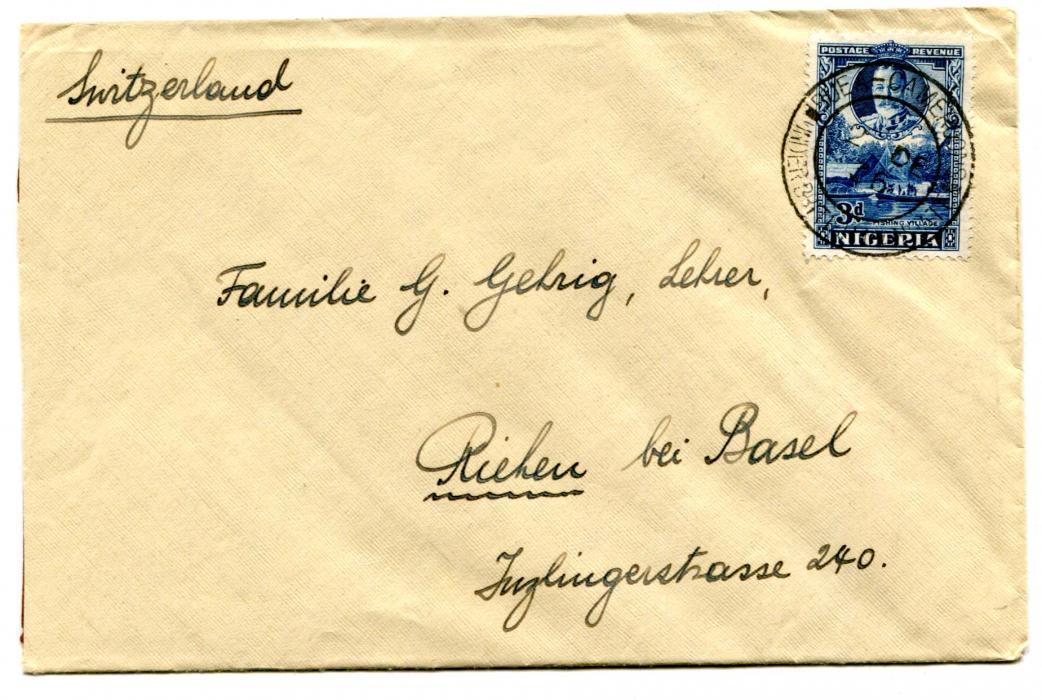 Switzerland
POSTAGE REVENUE
3d
FISHING VILLAGE
NIGERIA
DE
Familie G. Gehrig, Lehrer,
Riehen bei Basel
Inzlingerstrasse 240.